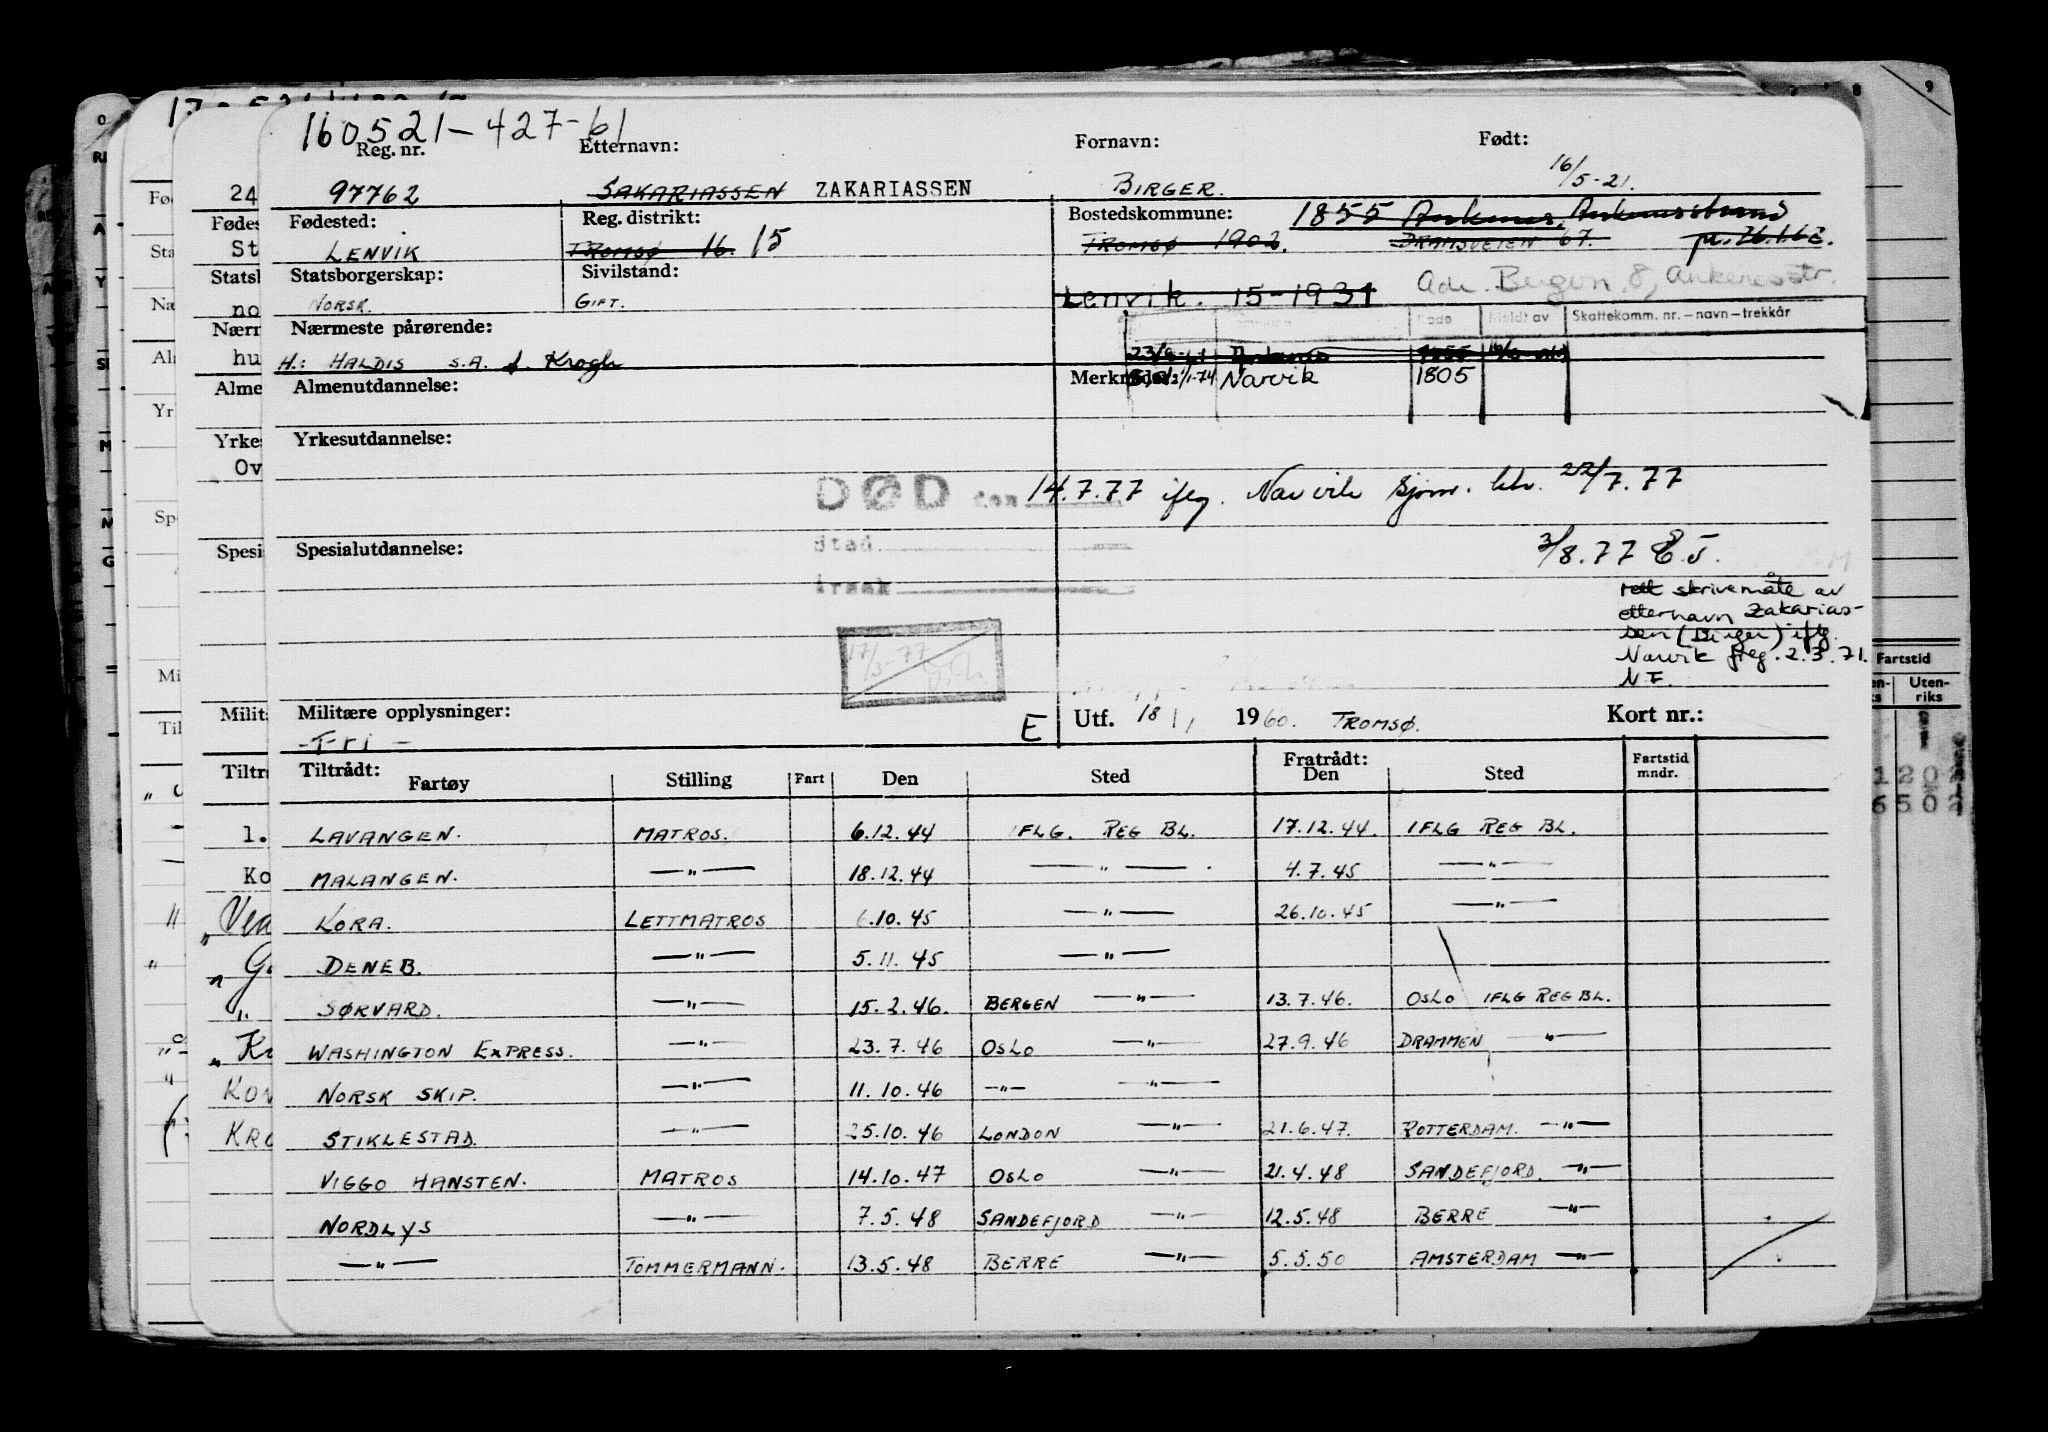 160521-427-61
Reg. nr. Etternavn: Fornavn: Født:
97762 SAKARIASSEN ZAKARIASSEN BIRGER. 16/5-21.
Fødested: Reg. distrikt: Bostedskommune: 1855 Ankenes, Ankenesstrand
LENVIK TROMSØ 16. 15 TROMSØ 1902. DRAMSVEIEN 67.
Statsborgerskap: Sivilstand: Adr. Bergvn. 8, Ankenesstr.
NORSK. GIFT. Lenvik. 15-1931
Nærmeste pårørende: Kode Meldt av Skattekomm. nr.-navn-trekkår
H.: HALDIS S.A. f. Krogh
Almenutdannelse: Merknader: 1/1-74 Narvik 1805
Yrkesutdannelse:
DØD den 14.7.77 iflg. Narvik sjøm. ktr. 22/7.77
Sted
årsak
Spesialutdannelse: 3/8.77 E.J.
rett skrivemåte av
etternavn Zakarias-
sen (Birger) iflg.
Narvik freg. 2.3.71.
N.F.
17/3-77
Militære opplysninger: E Utf. 18/1 1960. TROMSØ. Kort nr.:
-Fri-
Tiltrådt: Fratrådt:
Fartøy Stilling Fart Den Sted Den Sted Fartstid mndr.
LAVANGEN. MATROS. 6.12.44 IFLG. REG BL. 17.12.44. IFLG REG BL.
MALANGEN. —"— 18.12.44 —"— 4.7.45 —"—
KORA. LETTMATROS 6.10.45 —"— 26.10.45 —"—
DENEB. —"— 5.11.45 —"—
SØRVARD. —"— 15.2.46. BERGEN —"— 13.7.46. OSLO IFLG REG BL.
WASHINGTON EXPRESS. —"— 23.7.46 OSLO —"— 27.9.46 DRAMMEN —"—
NORSK SKIP. —"— 11.10.46 —"— —"—
STIKLESTAD. —"— 25.10.46 LONDON —"— 21.6.47. ROTTERDAM. —"—
VIGGO HANSTEN. MATROS 14.10.47 OSLO —"— 21.4.48 SANDEFJORD. —"—
NORDLYS —"— 7.5.48 SANDEFJORD —"— 12.5.48 BERRE —"—
—"— TØMMERMANN. 13.5.48 BERRE —"— 5.5.50 AMSTERDAM —"—
Fartstid
Uten-
riks